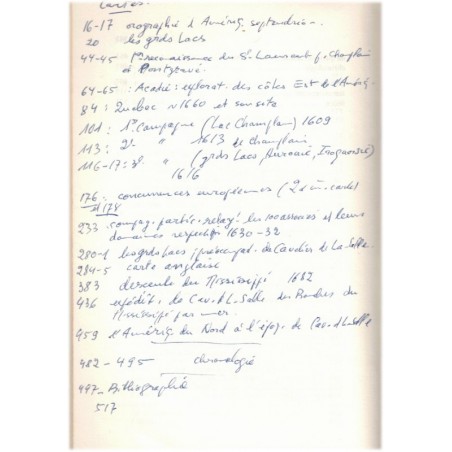 Cartes.
16-17 orographie d'Amériq. septentrion.
20 les grds Lacs
44-45 1re reconnaissance du St Laurent p. Champlain
et Pontgravé.
64-65 : Acadie : explorat. des côtes Est de l'Amériq.
84 : Québec v 1660 et
101 : 1re Campagne (Lac Champlain) 1609
113 : 2e " 1613 de Champlain
116-17 : 3e " (grds Lacs, Iroquoisie)
1616
176 : concurrences européennes (2e
et 178
233 compag. partie les et leurs
domaines respectifs 1630-32
280-1 les grds Lacs de Cavelier de La Salle.
284-5 carte anglaise
383 descente du Mississippi 1682
436 expédit. de Cav. d L. Salle des Bouches du
Mississipi par mer.
459 l'Amériq. du Nord à l'époq. de Cav. d L Salle
482-495 chronologie
497- Bibliographie
517